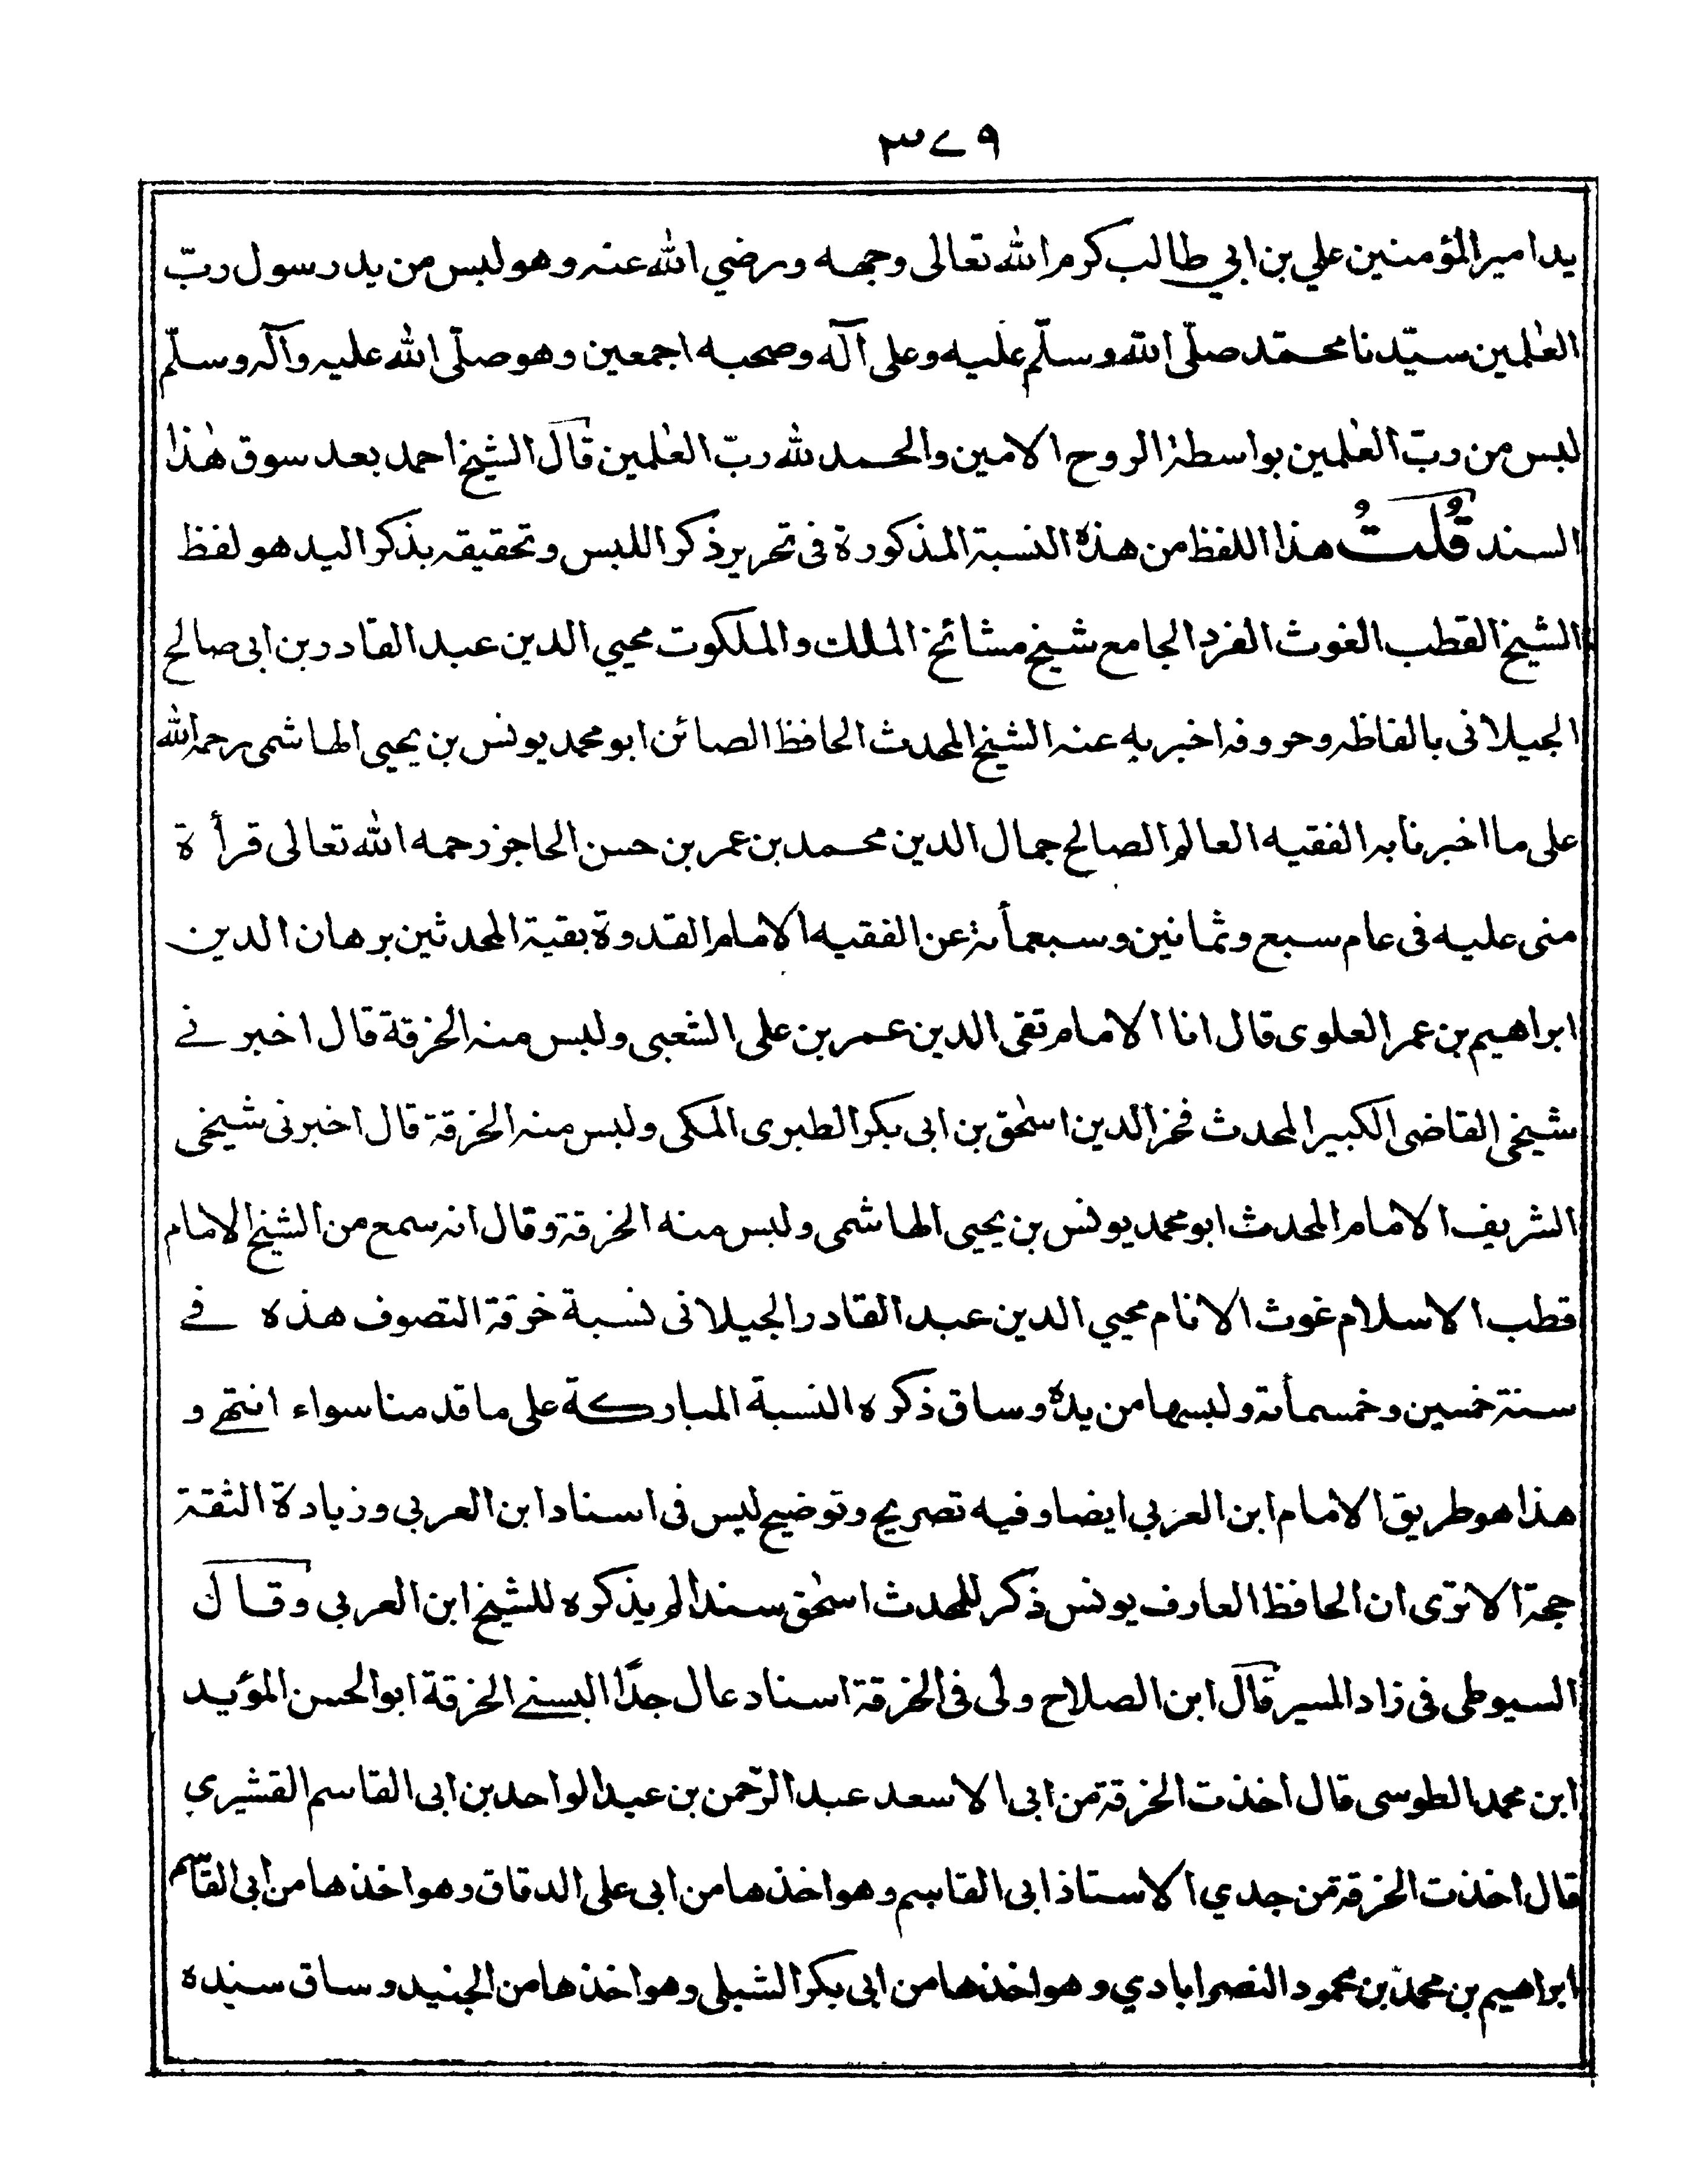 ٣٧٩
يد امير المؤمنين علي بن ابي طالب كرم الله تعالى وجهه ورضي الله عنه وهو لبس من يد رسول ربّ
العٰلمين سيّدنا محمّد صلّى الله وسلّم عليه وعلى آله وصحبه اجمعين وهو صلّى الله عليه وآله وسلّم
لبس من ربّ العٰلمين بواسطة الروح الامين والحمد لله ربّ العٰلمين قال الشيخ احمد بعد سوق هٰذا
السند قُلتُ هذا اللفظ من هذه النسبة المذكورة فى تحرير ذكر اللبس وتحقيقه بذكر اليد هو لفظ
الشيخ القطب الغوث الفرد الجامع شيخ مشائخ الملك والملكوت محيي الدين عبد القادر بن ابى صالح
الجيلانى بالفاظه وحروفه اخبر به عنه الشيخ المحدث الحافظ الصائن ابو محمد يونس بن يحيى الهاشمى رحمه الله
على ما اخبرنا به الفقيه العالم الصالح جمال الدين محمد بن عمر بن حسن الحاجز رحمه الله تعالى قرأة
منى عليه فى عام سبع وثمانين وسبعمأئة عن الفقيه الامام القدوة بقية المحدثين برهان الدين
ابراهيم بن عمر العلوى قال انا الامام تقى الدين عمر بن على الشعبى ولبس منه الخرقة قال اخبرنے
شيخى القاضى الكبير المحدث فخر الدين اسحٰق بن ابى بكر الطبرى المكى ولبس منه الخرقة قال اخبرنى شيخى
الشريف الامام المحدث ابو محمد يونس بن يحيى الهاشمى ولبس منه الخرقة وقال انه سمع من الشيخ الامام
قطب الاسلام غوث الانام محيي الدين عبد القادر الجيلانى نسبة خرقة التصوف هذه فے
سنة خمسين وخمسمأئة ولبسها من يده وساق ذكره النسبة المباركة على ما قدمنا سواء انتهے و
هذا هو طريق الامام ابن العربي ايضا وفيه تصريح وتوضيح ليس فى اسناد ابن العربي وزيادة الثقة
حجة الا ترى ان الحافظ العارف يونس ذكر للمحدث اسحٰق سندا لم يذكره للشيخ ابن العربي وقال
السيوطى فى زاد المسير قال ابن الصلاح ولى فى الخرقة اسناد عال جدًّا البسنے الخرقة ابو الحسن المؤيد
ابن محمد الطوسى قال اخذت الخرقة من ابى الاسعد عبد الرّحمن بن عبد الواحد بن ابى القاسم القشيري
قال اخذت الخرقة من جدي الاستاذ ابى القاسم وهو اخذها من ابى على الدقاق وهو اخذها من ابى القاسم
ابراهيم بن محمد بن محمود النصرابادي وهو اخذها من ابى بكر الشبلى وهو اخذها من الجنيد وساق سنده